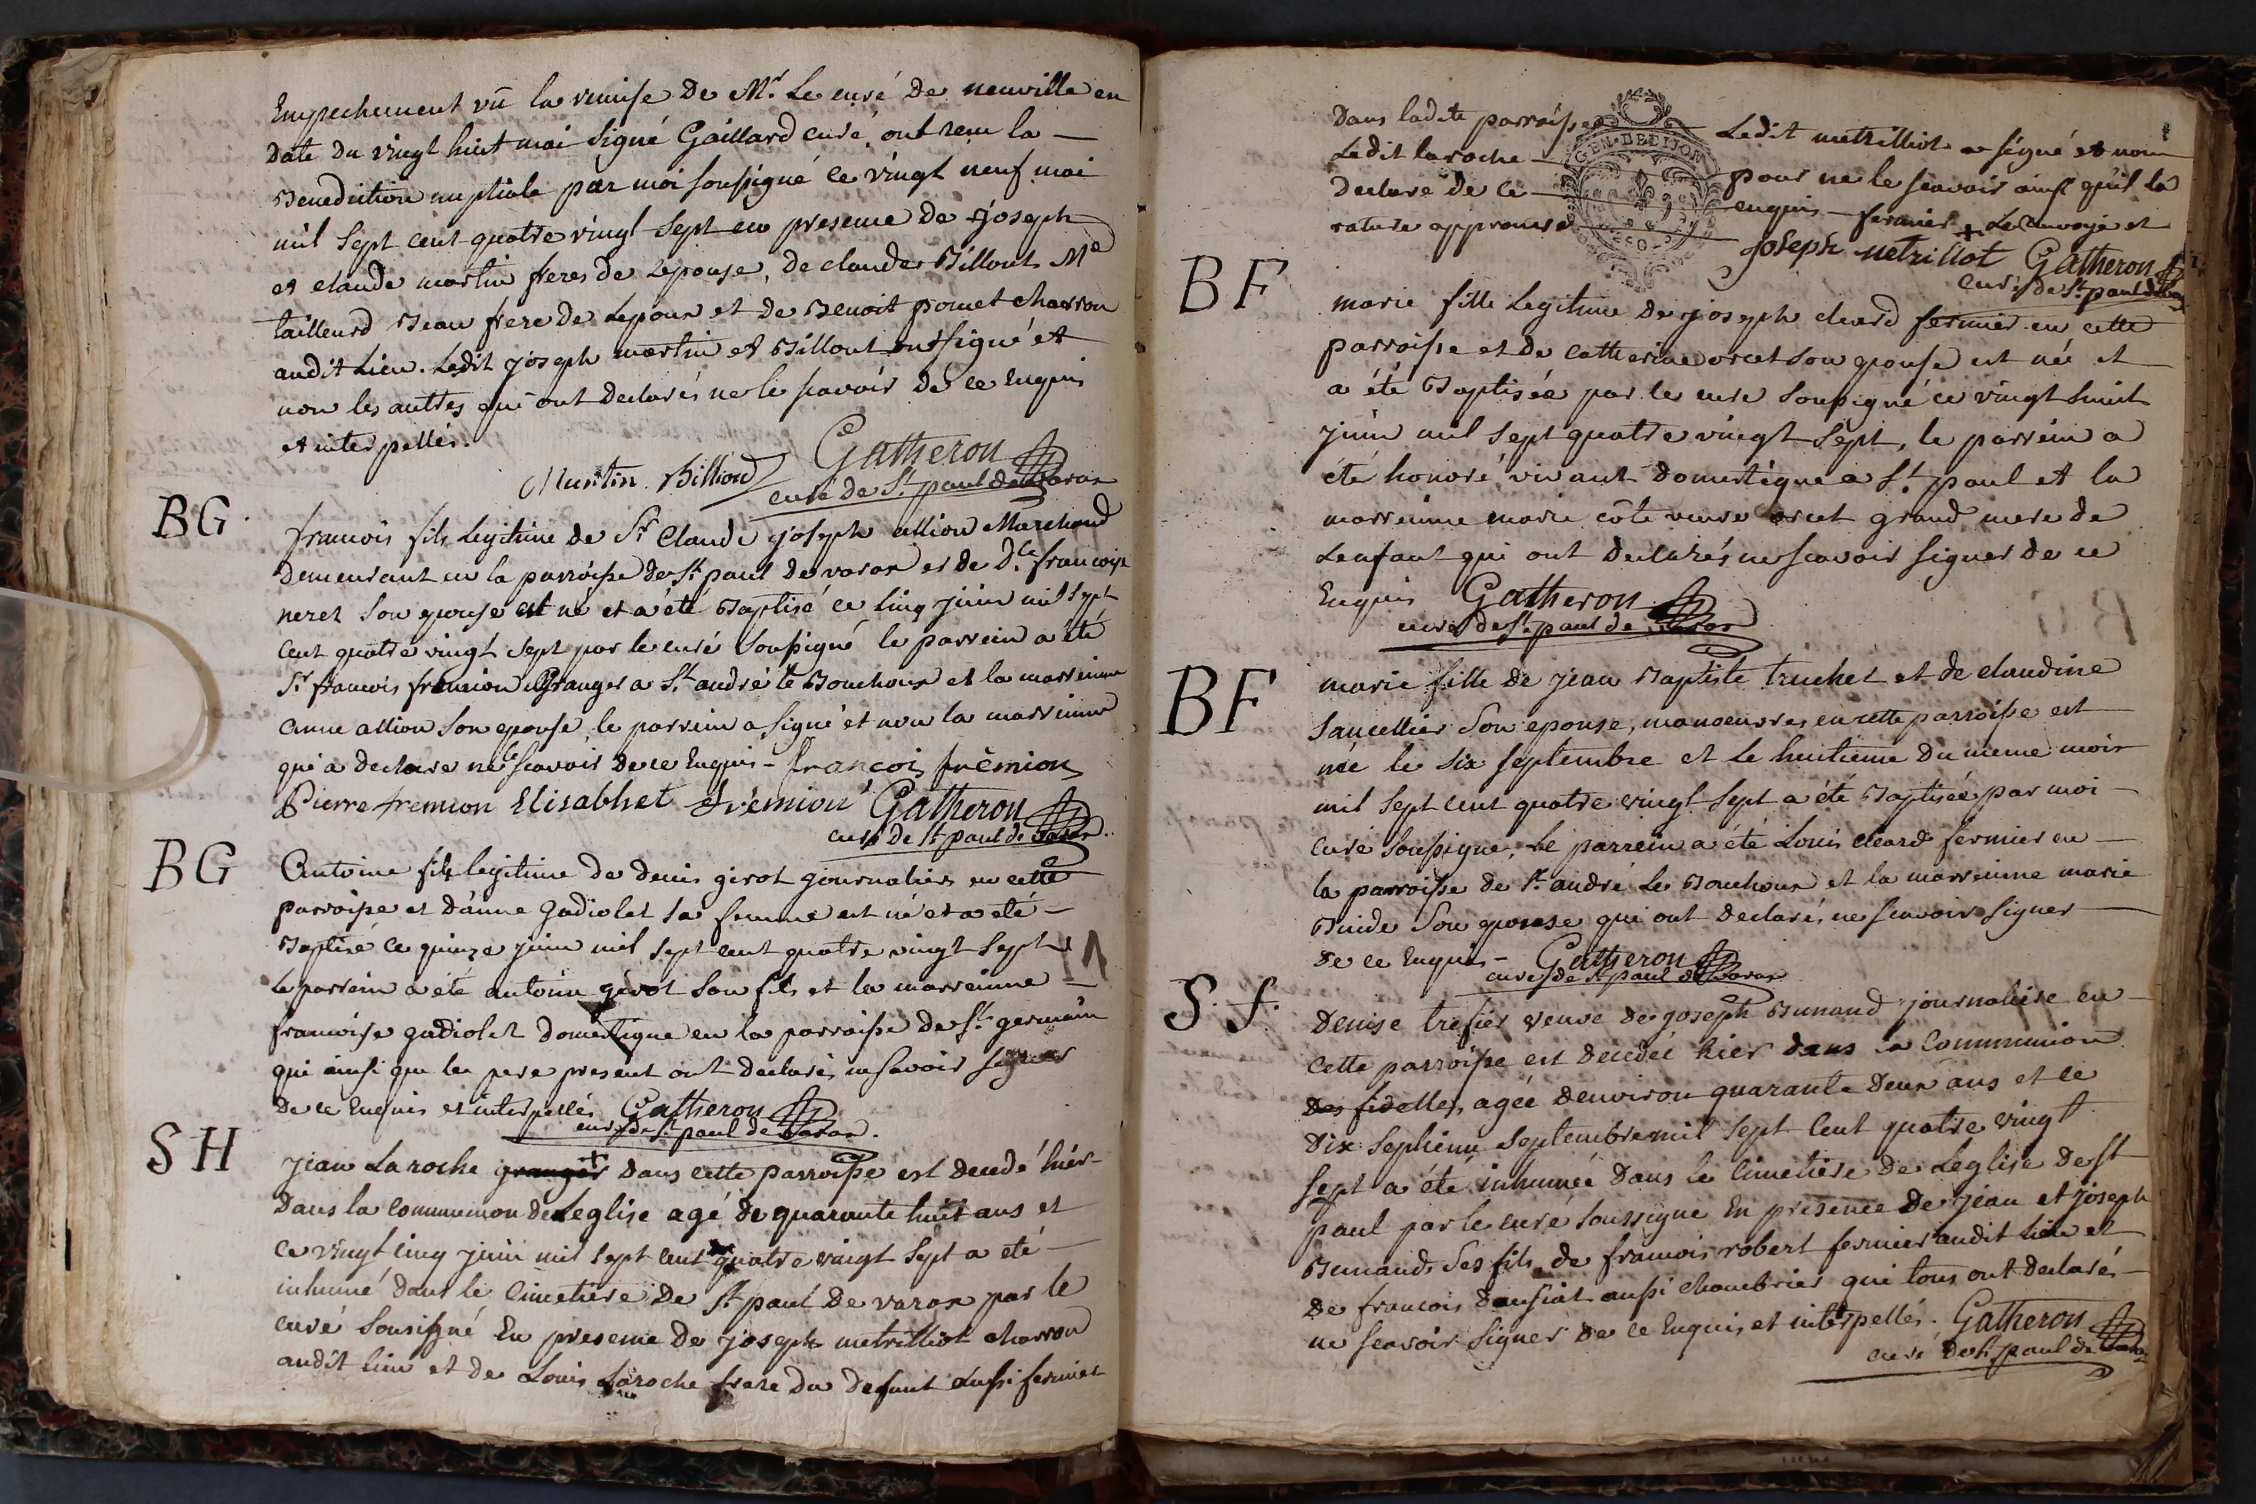 Empechement vû la remise de Mr. Le curé de neuville en
date du vingt huit mai signé Gaillard curé, ont recu la
Benediction nuptiale par moi soussigné ce vingt neuf mai
mil sept cent quatre vingt sept en presence de joseph
et claude martin freres de lepouse, de claude Billout Me
tailleurd Beau frere de lepoux et de Benoit pomet charron
audit Lieu. Ledit joseph martin et Billout ont signé et
non les autres qui ont declarés ne le scavoir de ce Enquis
et interpellés.
Martin Billioud Gatheron
curé de St. paul de Varax
BG.
francois fils Legitime de Sr. Claude joseph allion Marchand
demeurant en la parroisse de St. paul de varax et de Dle. francoise
neret son epouse est né et a été Baptisé ce cinq juin mil sept
cent quatre vingt sept par le curé soussigné le parrein a été
Sr. francois fremion Granger a St. andré le Bouchoux et la marreinne
anne allion son epouse, le parrein a signé et non la marreinne
qui a declare ne le scavoir de ce Enquis - francois frèmion
Pierre fremion Elisabhet frèmion Gatheron
curé de St paul de Varax.
BG
Antoine fils legitime de denis girot journalier en cette
parroisse et d'anne gadiolet sa femme est né et a été
Baptisé le quinze juin mil sept cent quatre vingt sept
Le parrein a été antoine girot son fils et la marreinne
francoise gadiolet domestique en la parroisse de St. germain
qui ainsi que le pere present ont declarés ne savoir signer
de ce Enquis et interpellés Gatheron
curé de St. paul de Varax.
SH
jean Laroche granger + dans cette parroisse est decedé hier
dans la Communion de Leglise agé de quarante huit ans et
ce vingt cinq juin mil sept cent quatre vingt sept a été
inhumé dans le Cimetiere de St. paul de varax par le
curé soussigné En presence de joseph metrilliot charron
audit lieu et de Louis Laroche frere du defunt aussi fermier
dans ladite parroisse Ledit metrilliot a signé et non
Ledit laroche pour ne le scavoir ainsi quil la
declaré de ce enquis - fermier + Le renvoye et
rature approuvé joseph metrillot Gatheron
GEN. DE DIJON
curé de St. paul de Varax
BF
marie fille Legitime de joseph cleard fermier en cette
parroisse et de catherine orcet son epouse est née et
a été Baptisée par le curé soussigné ce vingt huit
juin mil sept quatre vingt sept, le parrein a
été honoré vivant domestique a St. paul et la
marreinne marie côte veuve orcet grand mere de
Lenfant qui ont declarés ne scavoir signer de ce
Enquis Gatheron
curé de St. paul de Varax
BF
marie fille de jean Baptiste truchet et de claudine
Sancellier son epouse, manoeuvres en cette parroisse est
née le six septembre et le huitieme du meme mois
mil sept cent quatre vingt sept a été Baptisée par moi
Curé soussigné, Le parrein a été Louis cleard fermier en
la parroisse de St. andré Le Bouchoux et la marreinne marie
Buide son epouse qui ont declarés ne scavoir signer
de ce Enquis - Gatheron
curé de St paul de Varax
S. f.
Denise trefier veuve de joseph Bunand journaliere en
cette parroisse est decedée hier dans la Communion
des fidelles, agée denviron quarante deux ans et ce
dix septieme septembre mil sept Cent quatre vingt
sept a été inhumée dans le Cimetiere de Leglise de St
paul par le curé soussigné En presence de jean et joseph
Bunand ses fils, de francois robert fermier audit lieu et
de francois dansiat aussi chambrier qui tous ont declarés
ne scavoir signer de ce Enquis et interpellés. Gatheron
curé de St. paul de Varax